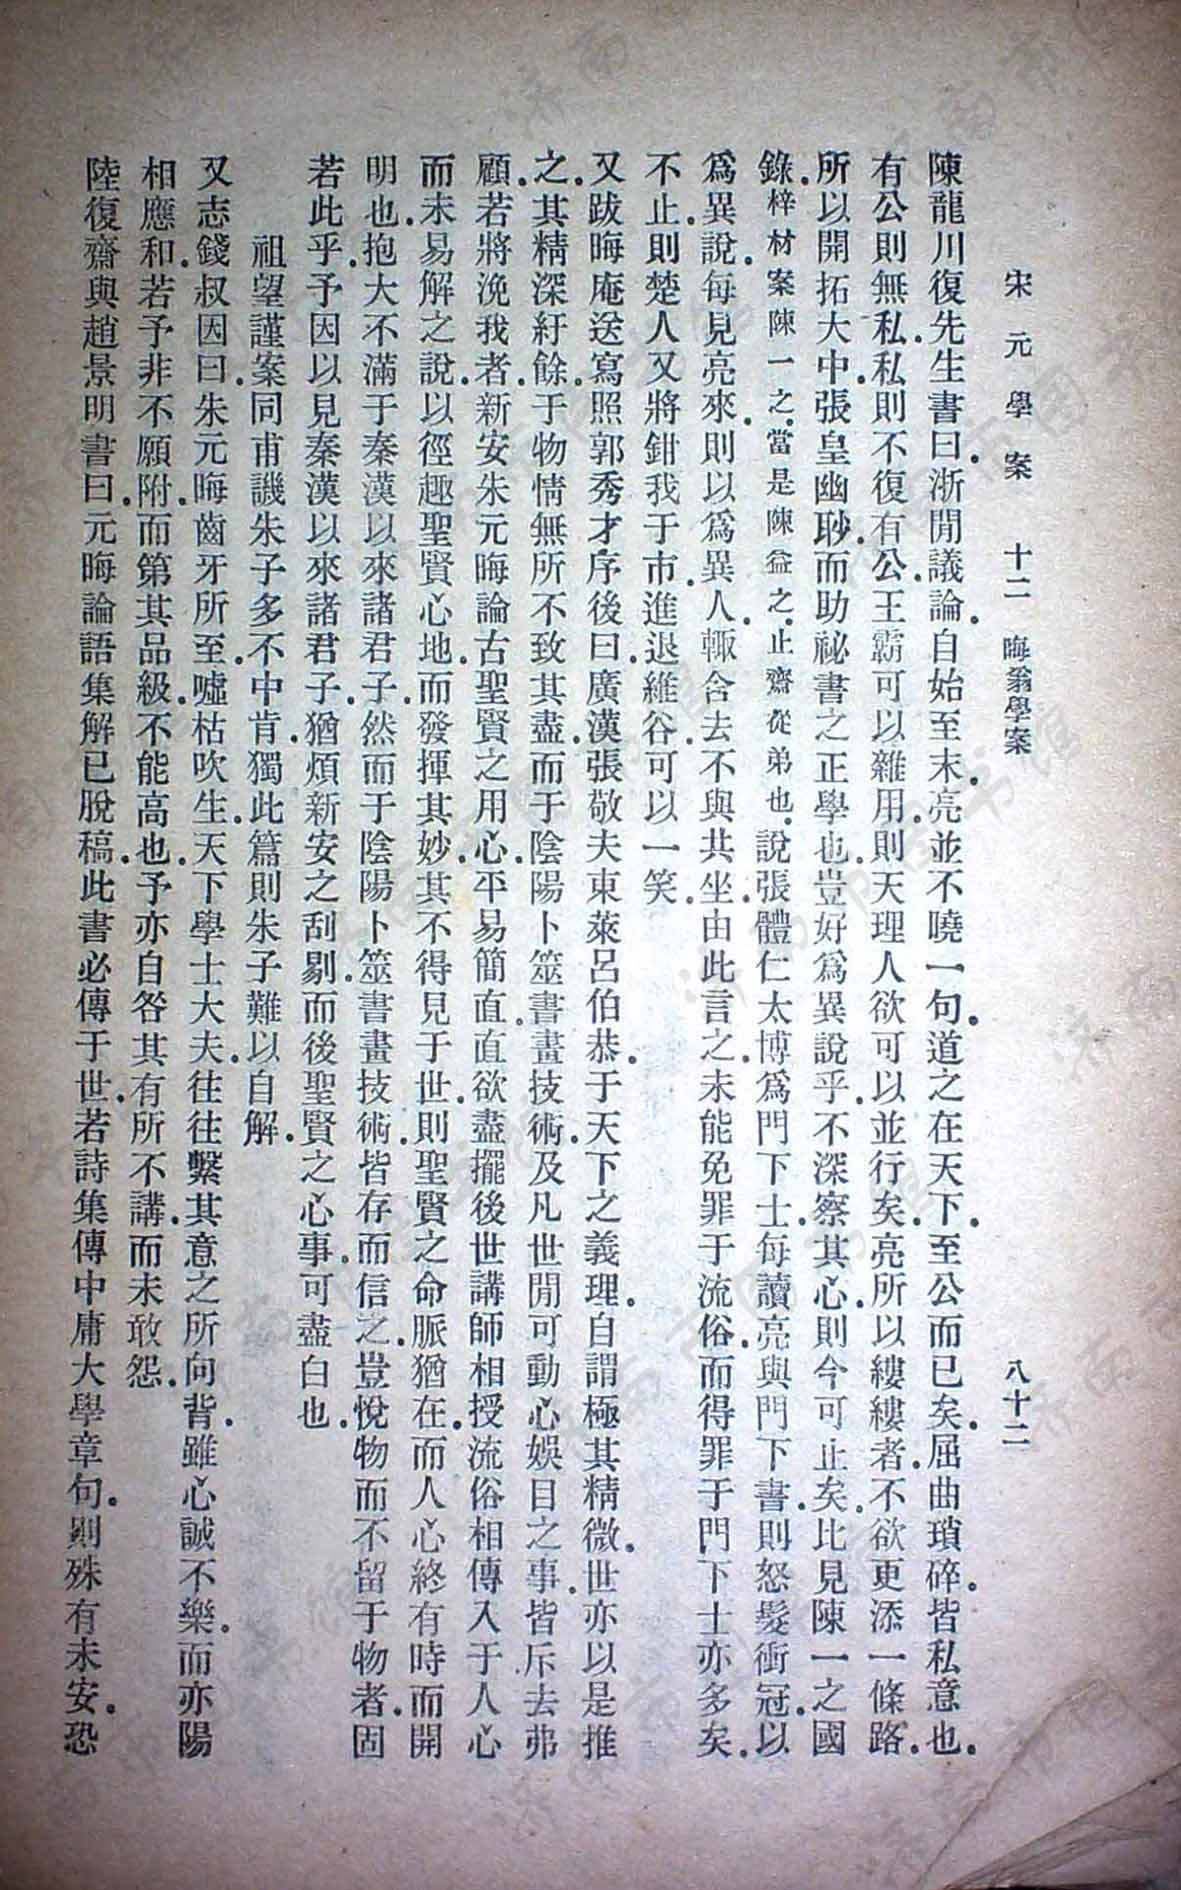 宋元學案 十二 晦翁學案 八十二
陳龍川復先生書曰浙閒議論自始至末亮並不曉一句道之在天下至公而已矣屈曲瑣碎皆私意也
有公則無私私則不復有公王霸可以雜用則天理人欲可以並行矣亮所以縷縷者不欲更添一條路
所以開拓大中張皇幽眇而助祕書之正學也豈好爲異說乎不深察其心則今可止矣比見陳一之國
錄梓材案陳一之當是陳益之止齋從弟也說張體仁太博爲門下士每讀亮與門下書則怒髮衝冠以
爲異說每見亮來則以爲異人輙舍去不與共坐由此言之未能免罪于流俗而得罪于門下士亦多矣
不止則楚人又將鉗我于市進退維谷可以一笑
又跋晦庵送寫照郭秀才序後曰廣漢張敬夫東萊呂伯恭于天下之義理自謂極其精微世亦以是推
之其精深紆餘于物情無所不致其盡而于陰陽卜筮書畫技術及凡世閒可動心娛目之事皆斥去弗
顧若將浼我者新安朱元晦論古聖賢之用心平易簡直直欲盡擺後世講師相授流俗相傳入于人心
而未易解之說以徑趣聖賢心地而發揮其妙其不得見于世則聖賢之命脈猶在而人心終有時而開
明也抱大不滿于秦漢以來諸君子然而于陰陽卜筮書畫技術皆存而信之豈悅物而不留于物者固
若此乎予因以見秦漢以來諸君子猶煩新安之刮剔而後聖賢之心事可盡白也
祖望謹案同甫譏朱子多不中肯獨此篇則朱子難以自解
又志錢叔因曰朱元晦齒牙所至噓枯吹生天下學士大夫往往繫其意之所向背雖心誠不樂而亦陽
相應和若予非不願附而第其品級不能高也予亦自咎其有所不講而未敢怨
陸復齋與趙景明書曰元晦論語集解已脫稿此書必傳于世若詩集傳中庸大學章句則殊有未安恐